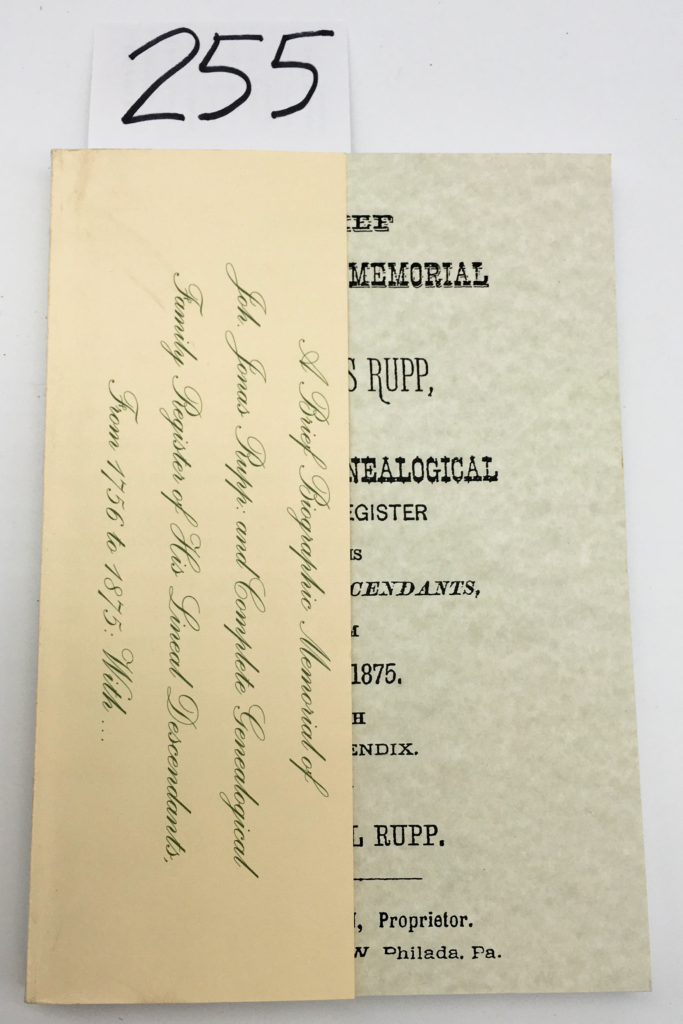 255
A Brief Biographic Memorial of
Joh. Jonas Rupp: and Complete Genealogical
Family Register of His Lineal Descendants,
From 1756 to 1875: With ...
IEF
MEMORIAL
S RUPP,
NEALOGICAL
EGISTER
IS
CENDANTS,
M
1875.
H
ENDIX.
L RUPP.
, Proprietor.
W Philada. Pa.